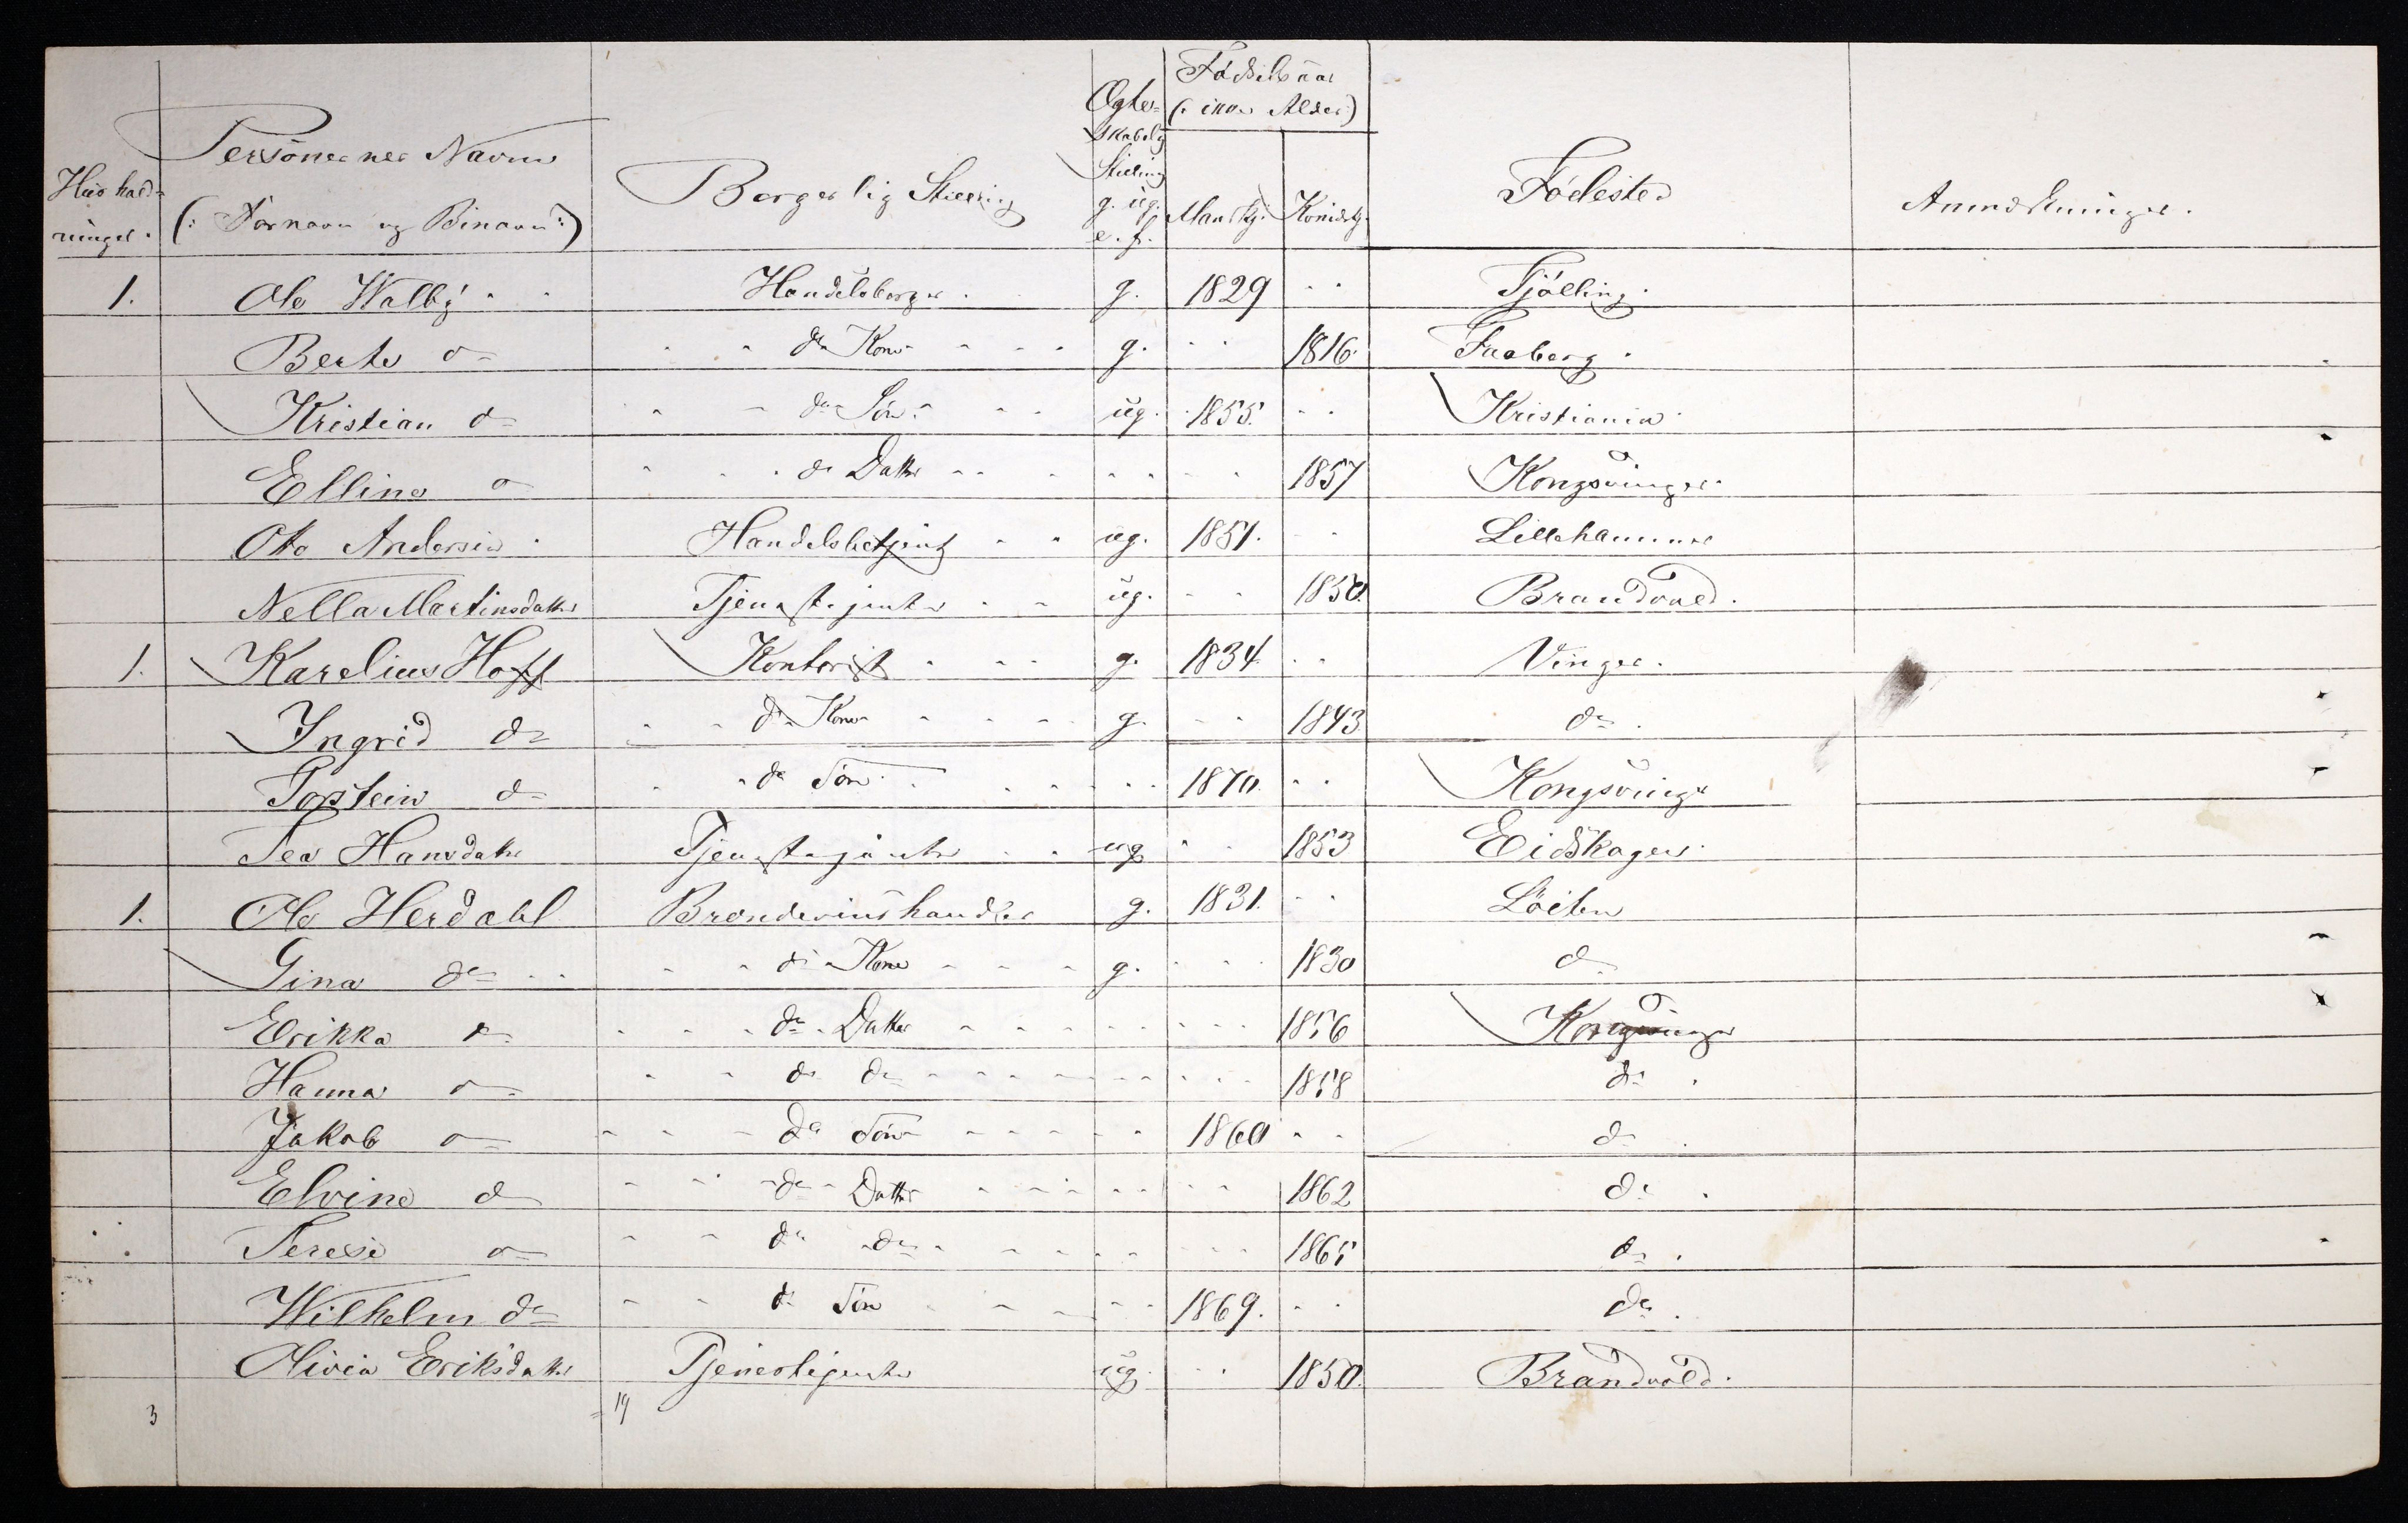 Hushald-
ninger.
Personernes Navne
(: Fornavn og Binavn :)
Borgerlig Stilling
Ægte-
skabelig
Stilling
g. ug.
e. f.
Fødselsaar
(: ikke Alder)
Mandkj. Kvindekj.
Fødested
Anmærkninger.
1. Ole Walby - - Handelsborger - g. 1829 - - Tjølling.
Berte do - - do Kone - - - - g. - - 1816. Faaberg.
Kristian do - - do Søn - - - ug. 1855. - - Kristiania
Elline do - - - do Datter - - - - - - - 1857 Kongsvinger.
Otto Andersen - Handelsbetjent - - ug. 1851. - - Lillehammer
Nella Martinsdatter Tjenestejente - - ug. - - 1850. Brandvold.
1. Karelius Hoff Kontorist - - - g. 1834. - - Vinger.
Ingrid do - - do Kone - - - - g. - - 1843 do.
Torstein do - - do Søn - - - - - 1870. - - Kongsvinger
Tea Hansdatter Tjenestejente - - ug - - 1853 Eidskogen.
1. Ole Herdahl Brændevinshandler g. 1831. - - Løiten
Gina do - - - - do Kone - - - - g. - - - 1830 do
Erikka do - - - do - Datter - - - - - - - - 1856 Kongsvinger
Hanna do - - do do - - - - - - - - - 1858 do.
Jakob do - - - do Søn - - - - - 1860 - - do.
Elvine do - - - do - Datter - - - - - - - 1862 do.
Terese do - - do - do - - - - - - - - 1865 do.
Wilhelm do - - do Søn - - - - - - 1869. - - do.
Olivia Eriksdatter Tjenestejente ug. - - 1850. Brandvold.
3 = 19